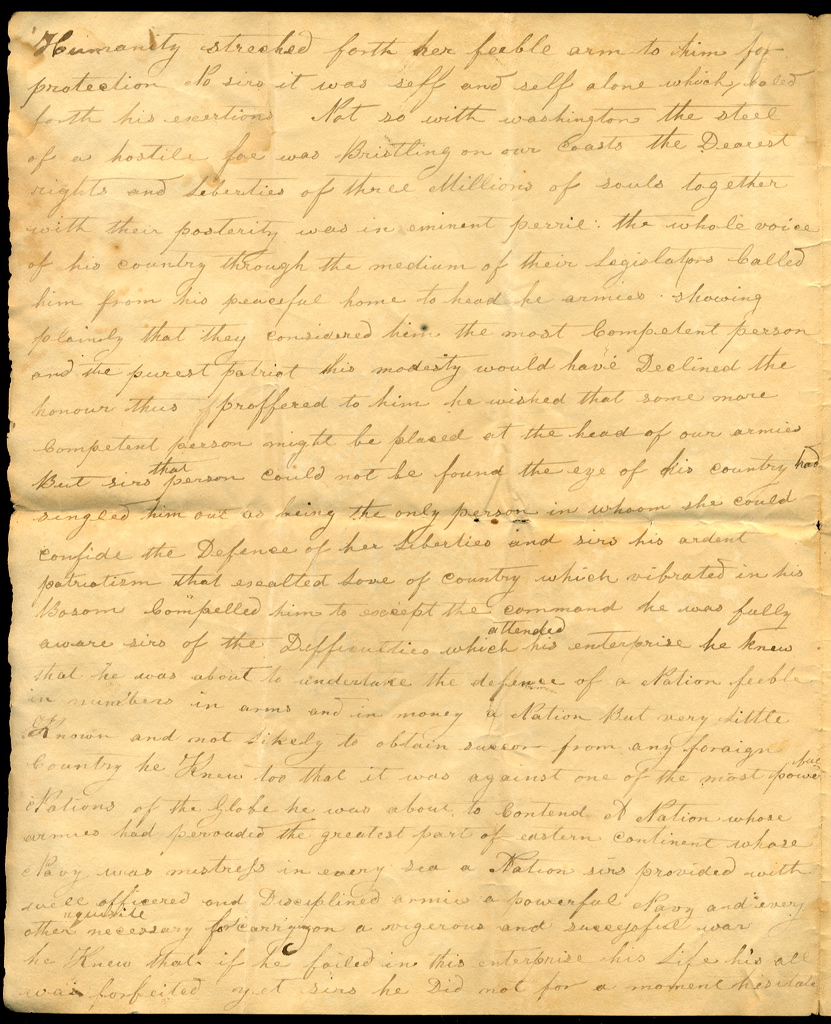 Humanity streched forth her feeble arm to him for
protection No sirs it was self and self alone which Caled
forth his exertions Not so with washington the steel
of a hostile foe was Bristling on our Coasts the Dearest
rights and Liberties of three Millions of souls together
with their posterity was in eminent perril: the whole voice
of his country through the medium of their Legislators Called
him from his peaceful home to head he armies showing
plainly that they considered him the most Competent person
and the purest patriot his modesty would have Declined the
honour thus proffered to him he wished that some more
Competent person might be placed at the head of our armies
But sirs that person could not be found the eye of his country had
singled him out as being the only person in whoom she could
confide the Defence of her Liberties and sirs his ardent
patriotism that exalted Love of Country which vibrated in his
Bosom Compelled him to except the command he was fully
aware sirs of the Difficulties which attended his enterprise he knew
that he was about to undertake the defence of a Nation feeble
in numbers in arms and in money a Nation But very little
Known and not likely to obtain succor from any foraign
Country he Knew too that it was against one of the most powerful
Nations of the Globe he was about to Contend A Nation whose
armies had pervaded the greatest part of eastern Continent whose
Navy was mistress in every sea a Nation sirs provided with
well officered and Disciplined armies a powerful Navy and every
other requisite necessary for carrying on a vigerous and successful war
he Knew that if he failed in this enterprise his Life his all
was forfeited yet sirs he Did not for a moment hesitate